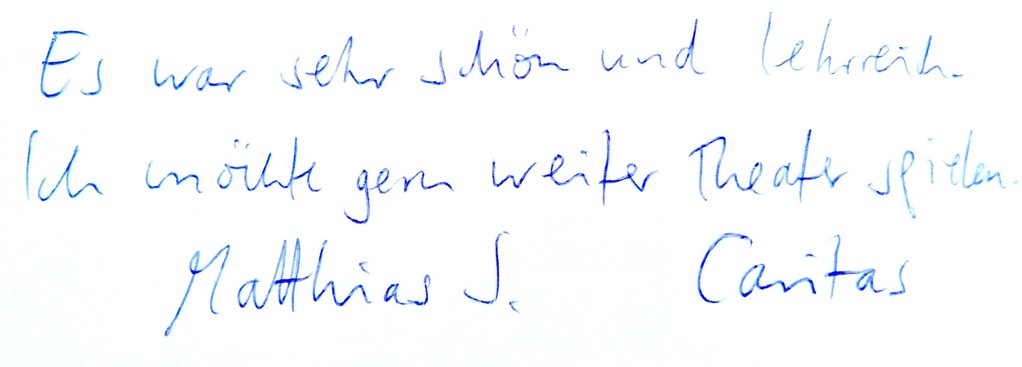 Es war sehr schön und lehrreich.
Ich möchte gern weiter Theater spielen.
Matthias S. Caritas